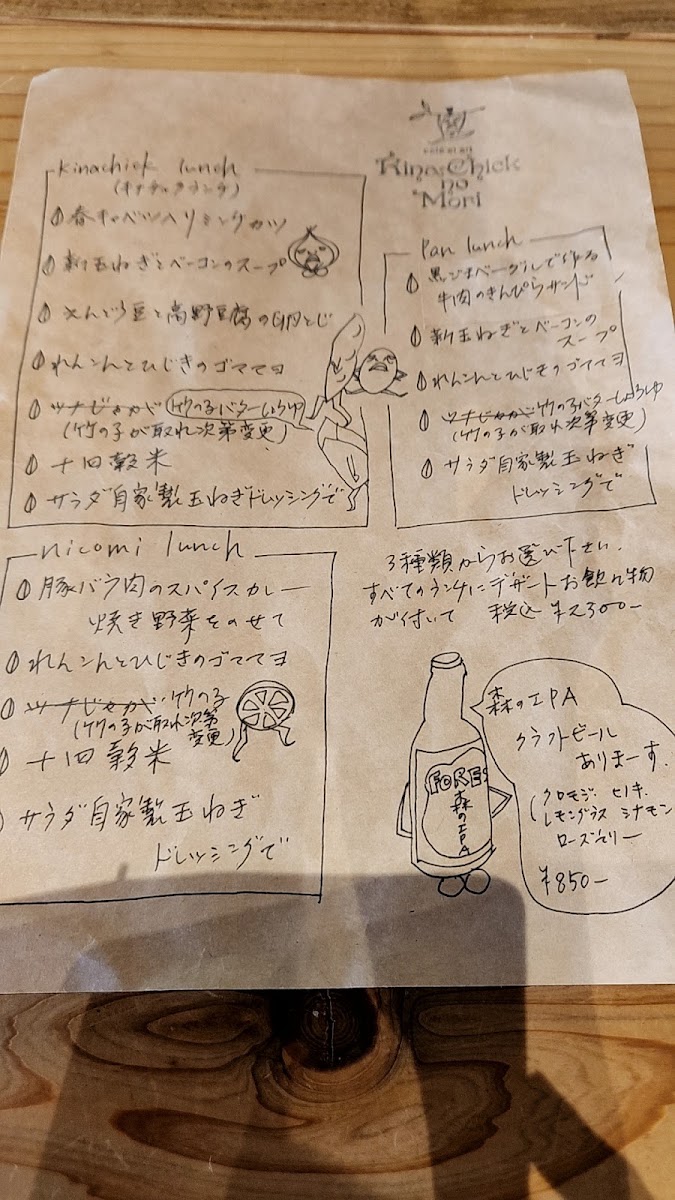 Kina Chick
no
Mori
Kinachick lunch
(キナチックランチ)
春キャベツ入りミンチカツ
新玉ねぎとベーコンのスープ
えんどう豆と高野豆腐の卵とじ
れんこんとひじきのゴママヨ
ツナじゃが 竹の子バターしょうゆ
(竹の子が取れ次第変更)
十四穀米
サラダ自家製玉ねぎドレッシングで
Pan lunch
黒ごまベーグルで作る
牛肉のきんぴらサンド
新玉ねぎとベーコンの
スープ
れんこんとひじきのゴママヨ
ツナじゃが 竹の子バターしょうゆ
(竹の子が取れ次第変更)
サラダ自家製玉ねぎ
ドレッシングで
nicomi lunch
豚バラ肉のスパイスカレー
焼き野菜をのせて
れんこんとひじきのゴママヨ
ツナじゃが 竹の子
(竹の子が取れ次第
変更)
十四穀米
サラダ自家製玉ねぎ
ドレッシングで
3種類からお選び下さい.
すべてのランチにデザートお飲み物
が付いて 税込 ¥2300-
FORES
森のIPA
森のIPA
クラフトビール
ありまーす.
(クロモジ ヒノキ
レモングラス シナモン
ローズマリー
¥850-